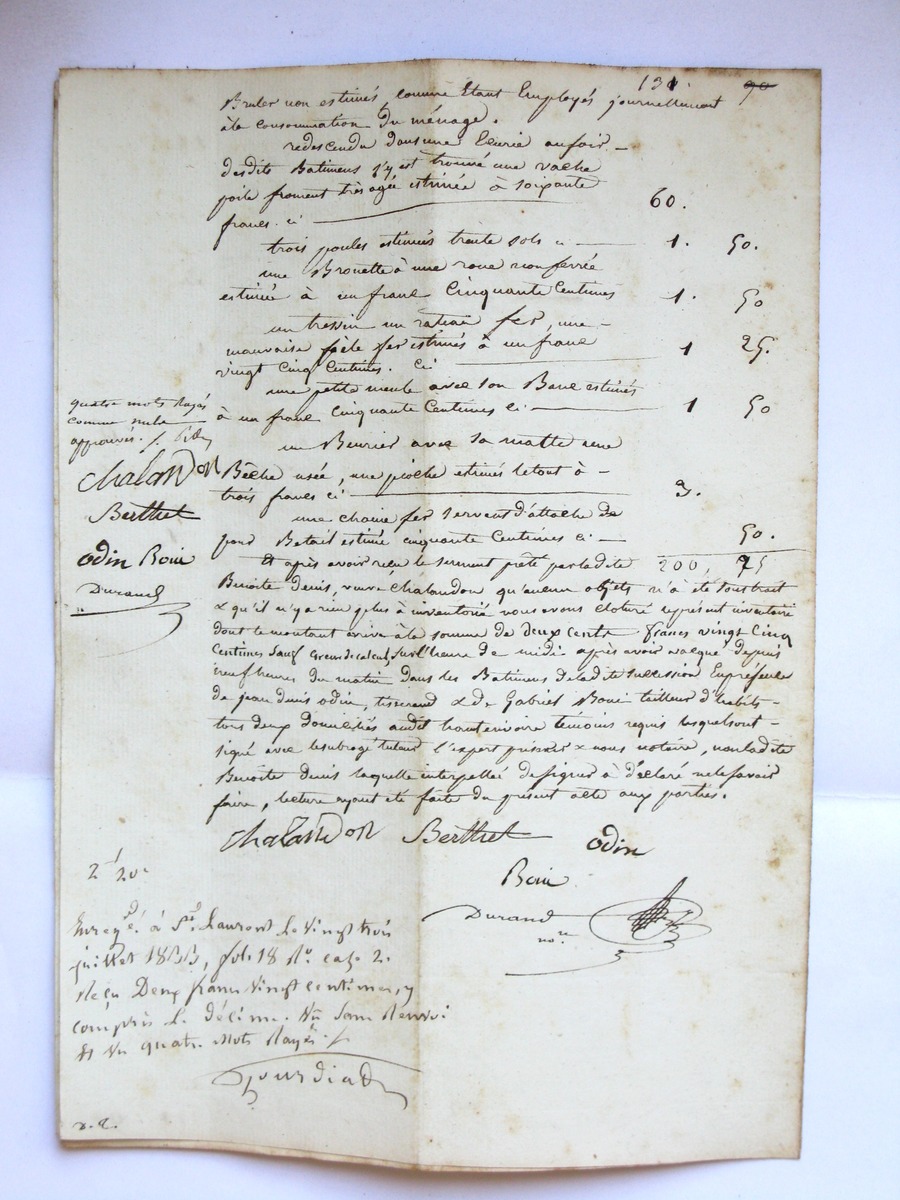 131. 90
Bruler non estimés, comme Etant Employés journellement
à la consommation du ménage.
redescendu dans une Ecurie au soir
desdits Batimens s'y est trouvé une vache
poile froment très agée estimée à soixante
francs. ci 60.
trois poules estimés trente sols ci 1. 50.
une Brouette à une roue non ferrée
estimée à un franc Cinquante Centimes 1. 50
un tressin un rateau fer, une
mauvaise poële fer estimés à un franc
vingt cinq Centimes. Ci 1 25.
une petite meule avec son Banc estimés
à un franc Cinquante Centimes ci. 1 50
un Beurier avec sa matte une
Bêche usée, une pioche estimés le tout à
trois francs ci 3.
une chaine fer servent d'attache de
pour Betail estimé cinquante Centimes ci 50.
Et après avoir reçu le serment prêté par ladite 200, 25
Benoite denis, veuve Chalandon qu'aucun objets n'a été soustrait
& qu'il n'y a rien plus à inventorié, nous avons cloturé le présent inventaire
dont le montant arrive à la somme de deux cents francs vingt Cinq
Centimes sauf erreur de calcul, sur l'heure de midi après avoir vacqué depuis
neuf heures du matin dans les Batimens de ladite succession En présence
de jean denis odin, tisserand & de Gabriel Boui tailleur d'habits
tous deux domiciliés audit temoins requis lesquels ont
signé avec le subrogé tuteur l'expert priseur & nous notaire, non ladite
Benoite denis laquelle interpellée de signer à déclaré ne le savoir
faire, lecture ayant été faite du présent acte aux parties.
quatre mots rayés
comme nuls
approuvés.
Chalandon
Berthet
odin Boui
Durand
Chalandon Berthet odin
Boui
Durand
nore
2f 20c
Enregé. à St. Laurent le vingt trois
juillet 1833, fol. 18 Ro. case 2.
Reçu Deux francs vingt centimes, y
compris le décime. Vu sans Renvoi
Et Vu quatre Mots Rayés.
Gourdiat